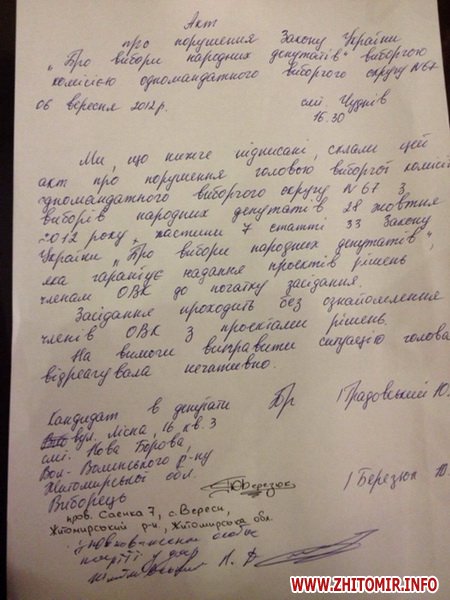 Акт
про порушення Закону України
„Про вибори народних депутатів" виборчою
комісією одномандатного виборчого округу N67
06 вересня 2012р. смт. Чуднів
16.30
Ми, що нижче підписані, склали цей
акт про порушення головою виборчої комісії
одномандатного виборчого округу N 67 з
виборів народних депутатів 28 жовтня
2012 року, частини 7 статті 33 Закону
України „Про вибори народних депутатів",
яка гарантує надання проектів рішень
членам ОВК до початку засідання.
Засідання проходить без ознайомлення
членів ОВК з проектами рішень.
На вимоги виправити ситуацію голова
відреагувала негативно.
Кандидат в депутати /Градовський Ю.
вул. Лісна, 16 кв. 3
смт. Нова Борова,
Вол-Волинського р-ну
Житомирської обл.
Виборець Березюк /Березюк Ю.
пров. Саєнка 7, с. Вереси,
Житомирський р-н, Житомирська обл.
особа
партії
WWW.ZHITOMIR.INFO